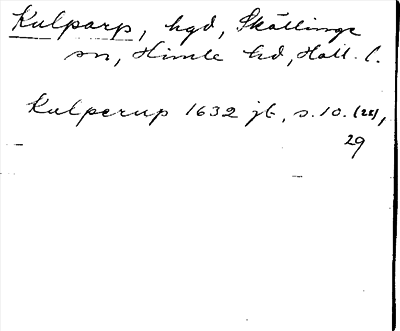 Kulparp, hgd, Skällinge
sn, Himle hd, Hall. l.
Kulperup 1632 jb, s. 10. (28),
29